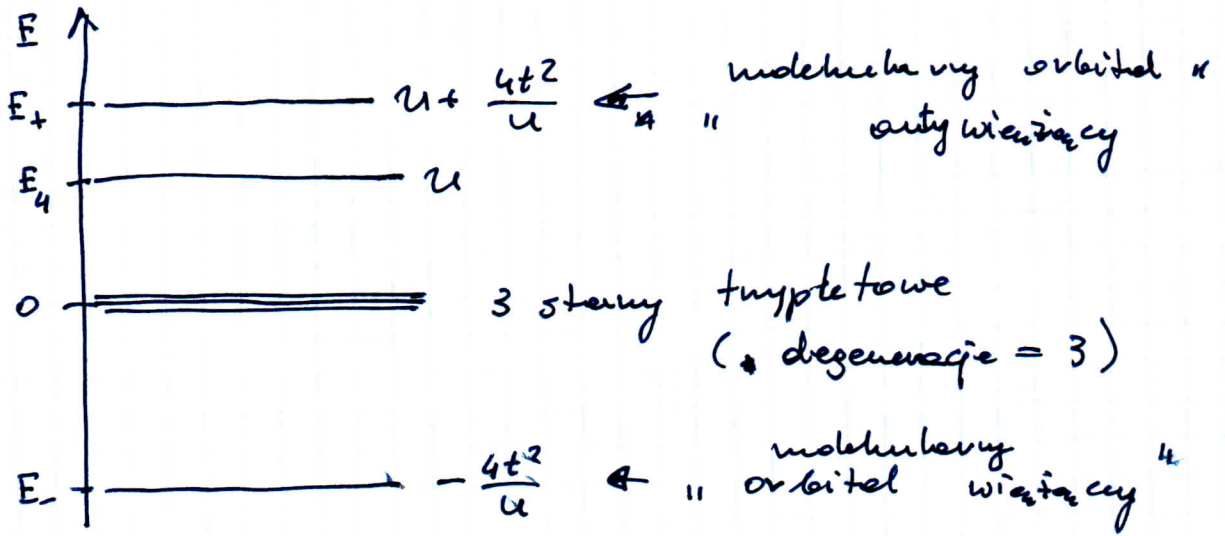 E
E₊ U + 4t²/U ← „molekularny orbital”
antywiążący
E₄ U
0 3 stany trypletowe
(degeneracja = 3)
E₋ - 4t²/U ← „molekularny
orbital wiążący”